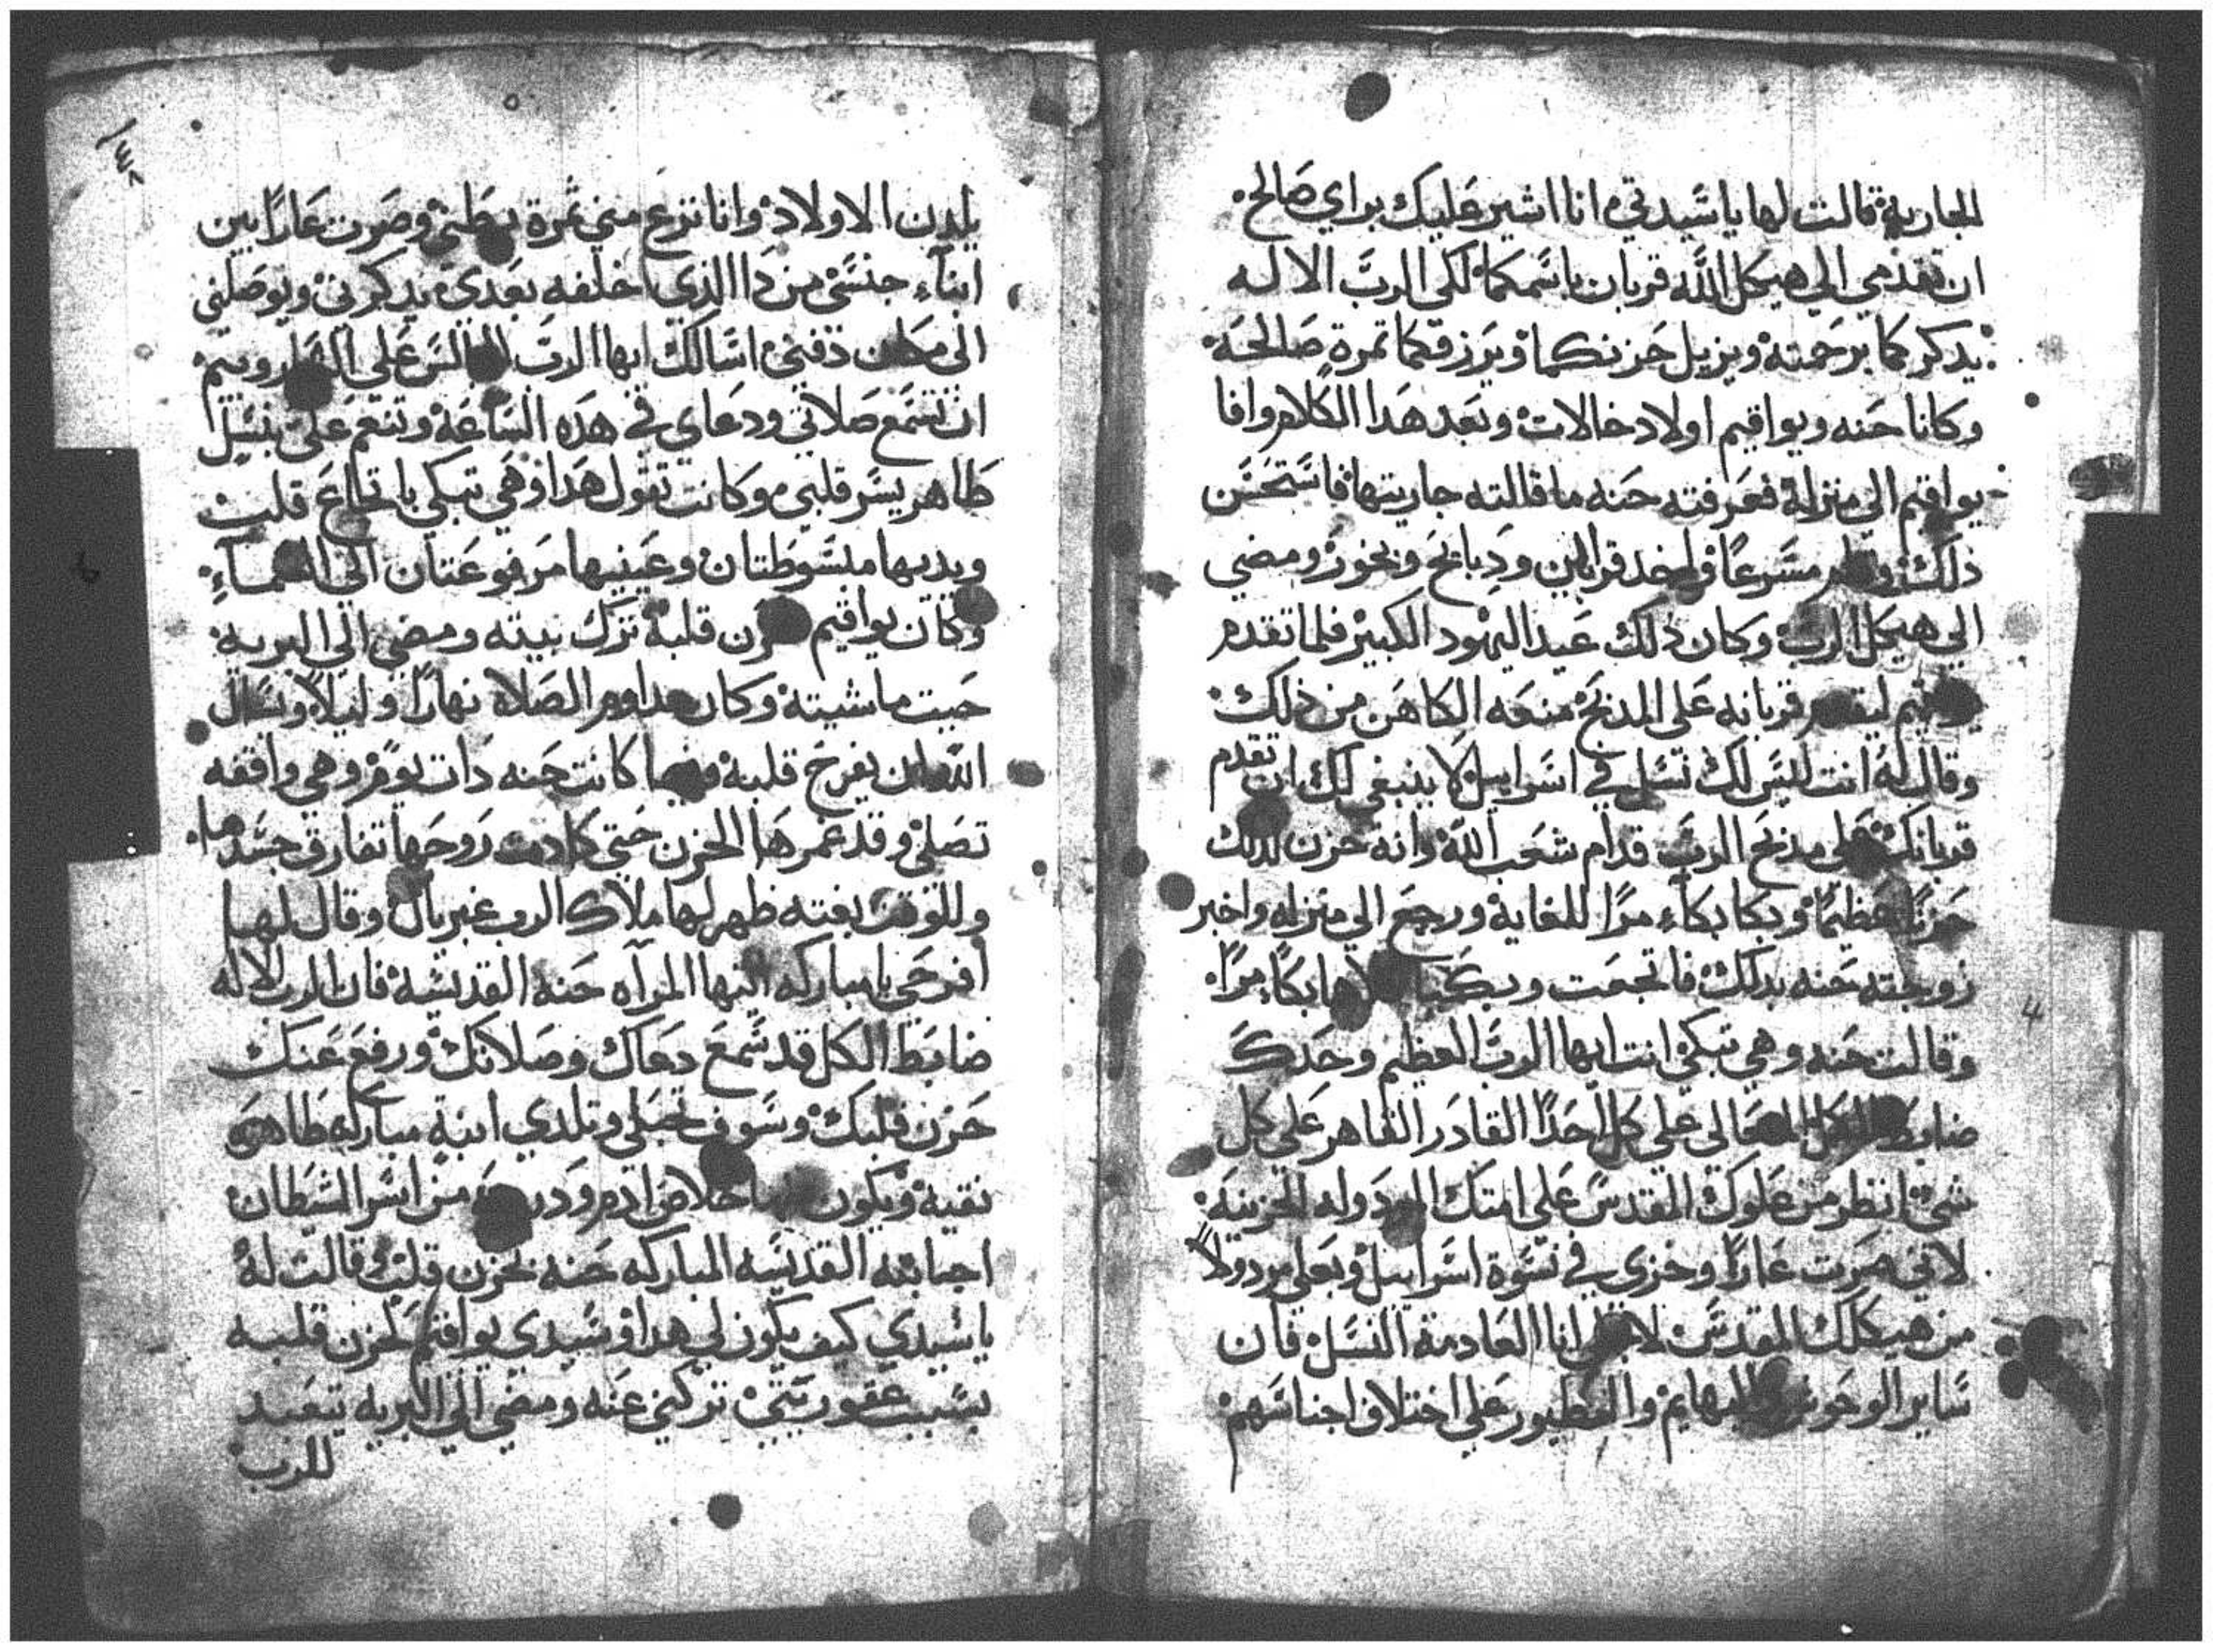 الجارية قالت لها يا سيدتي انا اشير عليك براي صالح
ان تقدمي الي هيكل الله قربان باسمكما لكي الرب الاله
يدكركما برحمته ويزيل حزنكما ويرزقكما تمرة صالحة
وكانا حنه ويواقيم اولاد خالات وبعد هدا الكلام وافا
يواقيم الي منزله فعرفته حنه ما قالته جاريتها فاستحسن
ذلك مسرعا واخد قرابين ودبايح وبخور ومضي
الي هيكل الرب وكان ذلك عيد اليهود الكبير فلما تقدم
يواقيم ليقدم قربانه علي المدبح منعه الكاهن من ذلك
وقال له انت ليس لك نسل في اسراييل لا ينبغي لك ان تقدم
قربانك علي مدبح الرب قدام شعب الله وانه حزن لدلك
حزنا عظيما وبكا بكاء مرا للغاية ورجع الي منزله واخبر
زوجته حنه بدلك فاتجمعت وبكيا كلاهما بكاء مرا
وقالت حنه وهي تبكي انت ايها الرب العظيم وحدك
ضابط الكل المتعالي علي كل احدا القادر القاهر علي كل
شي انظر من علوك المقدس علي امتك المردوله الحزينه
لاني صرت عارا وخزي في نسوة اسراييل وبعلي مردولا
من هيكلك المقدس لاجلي انا العادمة النسل فان
ساير الوحوش والبهايم والطيور علي اختلاف اجناسهم
يلدن الاولاد وانا نزع مني ثمرة بطني وصرت عارا بين
ابناء جنسي من دا الذي اخلفه بعدي يدكرني ويوصلني
الي مكان دفني اسالك ايها الرب الجالس علي
ان تسمع صلاتي ودعاي في هده الساعة وتنعم علي بنسل
طاهر يسر قلبي وكانت تقول هدا وهي تبكي باتجاع قلب
ويديها مبسوطتان وعينيها مرفوعتان الي السماء
وكان يواقيم حزن قلبه ترك بيته ومضي الي البرية
حيت ماشيته وكان مداوم الصلاة نهارا وليلا ويسال
الله ان يفرح قلبه وفيما كانت حنه دات يوم وهي واقفه
تصلي وقد غمرها الحزن حتي كادت روحها تفارق جسدها
وللوقت بغته ظهر لها ملاك الرب غبريال وقال لها
افرحي يا مباركه ايتها المراه حنه القديسة فان الرب الاله
ضابط الكل قد سمع دعاك وصلاتك ورفع عنك
حزن قلبك وسوف تحبلي وتلدي ابنة مباركه طاهره
نقية ويكون بها خلاص ادم ودريته من اسر الشيطان
اجابته القديسه المباركه حنه بحزن قلب قالت له
يا سيدي كيف يكون لي هدا وسيدي يواقيم لحزن قلبه
بسبب عقوريتي تركني عنه ومضي الي البريه يتعبد
للرب